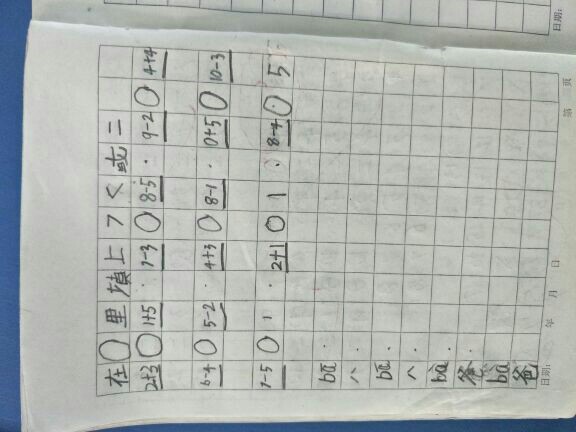 在○里填上 > < 或 =
2+3○1+5 · 7-3○8-5 · 9-2○4+4
6-4○5-2 · 4+3○8-1 · 0+5○10-3
7-5○1 · 2+1○1 · 8-4○5
bā ·
八 ·
bā ·
八 ·
bà
爸 ·
bà
爸
日期: 年 月 日 第 页
日期: